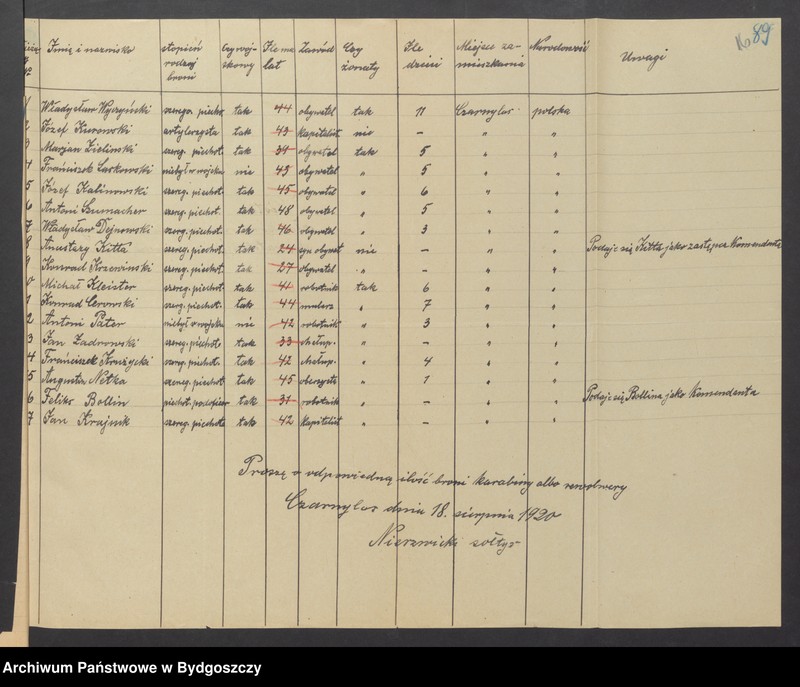 89
Imię i nazwisko stopień rodzaj broni Czy wojskowy Ile ma lat Zawód Czy żonaty Ile dzieci Miejsce zamieszkania Narodowość Uwagi
Władysław Wyczyński szereg. piechot. tak 44 obywatel tak 11 Czarnylas polska
2 Józef Kurowski artylerzysta tak 43 Kapitalist nie — " "
3 Marjan Zieliński szereg. piechot. tak 31 obywatel tak 5 " "
4 Franciszek Laskowski niebył w wojsku nie 49 obywatel " 5 " "
5 Józef Kalinowski szereg. piechot. tak 45 obywatel " 6 " "
6 Antoni Szumacher szereg. piechot. tak 48 obywatel " 5 " "
7 Władysław Dejnowski szereg. piechot. tak 46 obywatel " 3 " "
8 Anastazy Kitta szereg. piechot. tak 24 syn obywat nie — " " Podaje się Kitta jako zastępca Komendanta
9 Konrad szereg. piechot. tak 27 obywatel " — " "
0 Michał Kleister szereg. piechot. tak 41 robotnik tak 6 " "
1 Konrad Cerowski szereg. piechot. tak 44 mularz " 7 " "
2 Antoni Pater niebył w wojsku nie 42 robotnik " 3 " "
3 Jan Zadrowski szereg. piechot. tak 33 chałup. " — " "
4 Franciszek Krużycki szereg. piechot. tak 42 chałup. " 4 " "
5 Augustyn Netka szereg. piechot. tak 45 oberzysta " 1 " "
6 Feliks Bollin piechot. podoficer tak 31 robotnik " — " " Podaje się Bollina jako Komendanta
7 Jan Krajnik szereg. piechot. tak 42 Kapitalist " — " "
Proszę o odpowiedną ilość broni karabiny albo rewolwery
Czarnylas dnia 18. sierpnia 1920
Nierzwicki sołtys
Archiwum Państwowe w Bydgoszczy